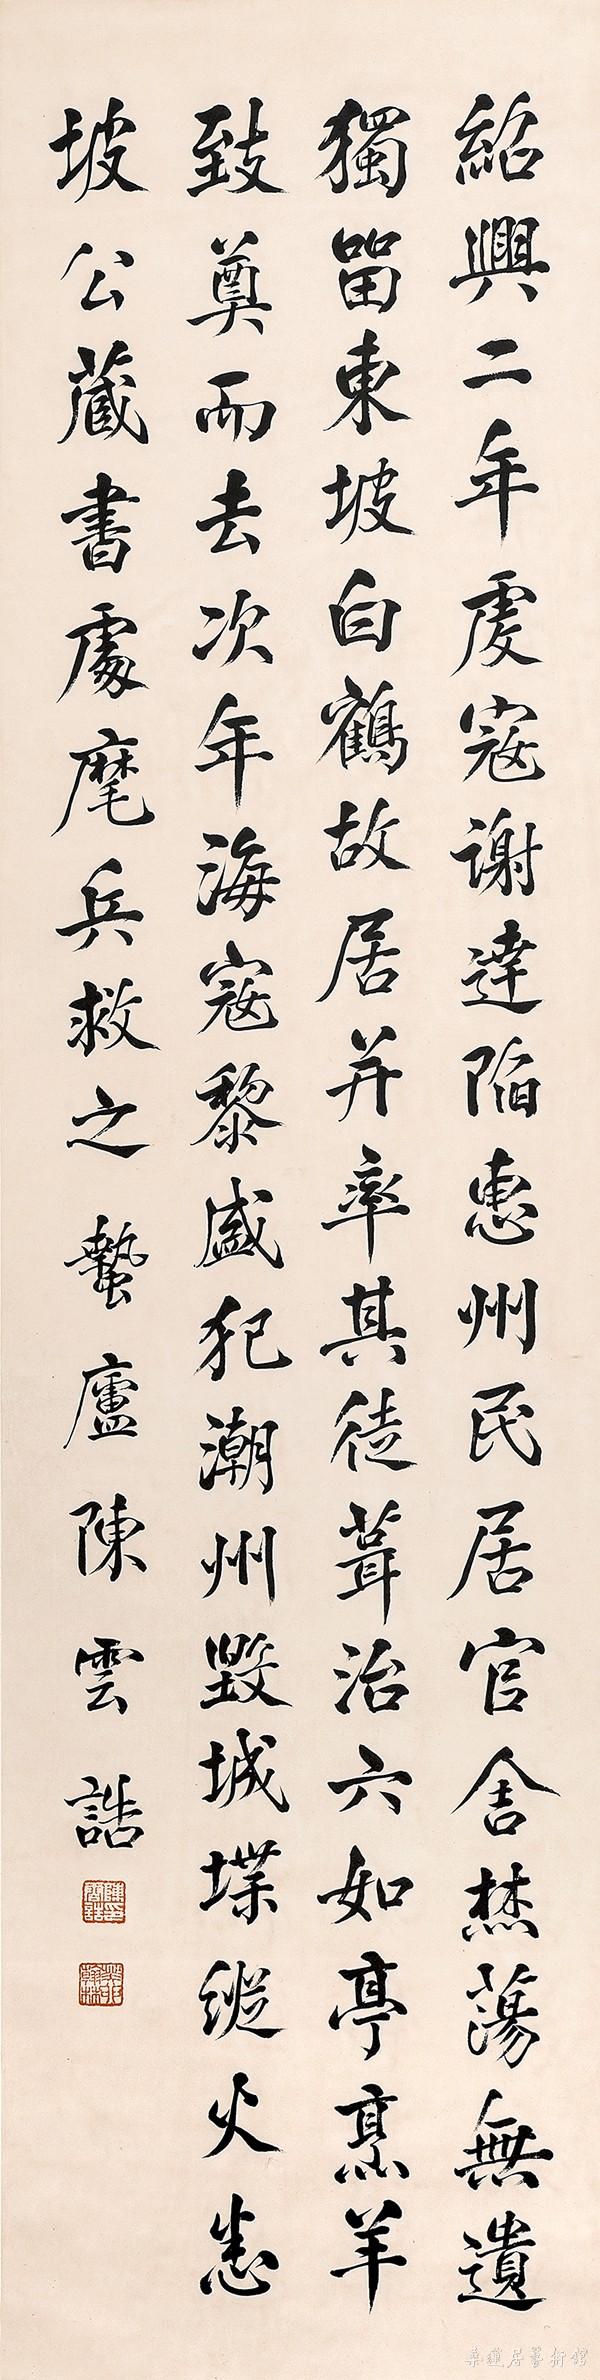 紹興二年虔寇謝達陷惠州民居官舍焚蕩無遺
獨留東坡白鶴故居并率其徒葺治六如亭烹羊
致奠而去次年海寇黎盛犯潮州毀城堞縱火悉
坡公藏書處麾兵救之 蟄廬陳雲誥
桑蓮居藝術館